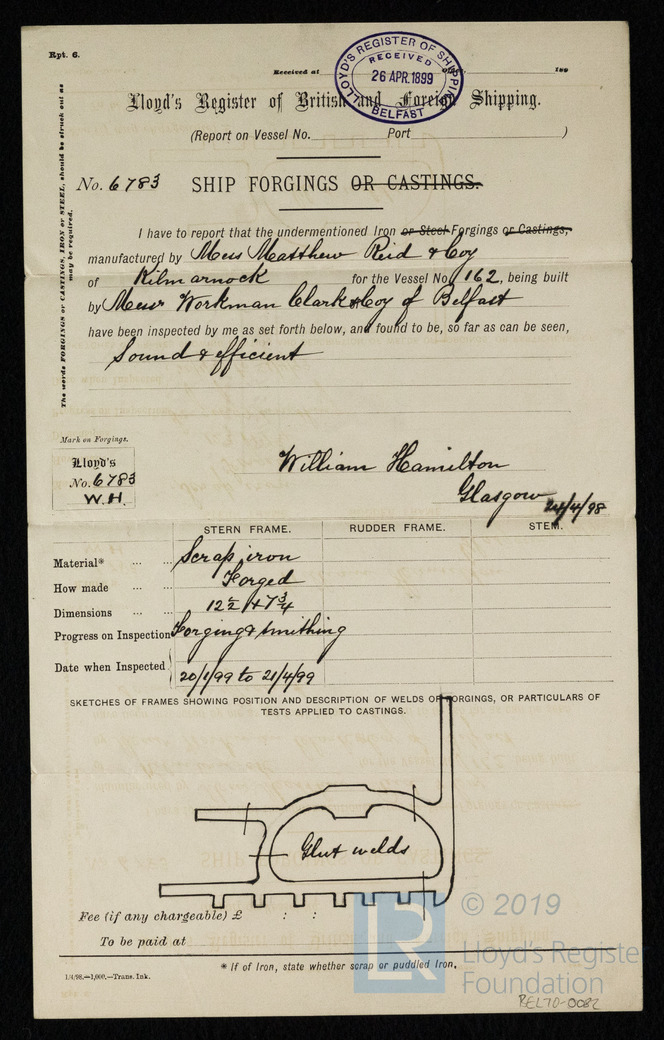 Rpt. 6.
LLOYD'S REGISTER OF SHIPPING
RECEIVED
26 APR.1899
BELFAST
Received at 189
Lloyd's Register of British and Foreign Shipping.
(Report on Vessel No. Port )
No. 6783 SHIP FORGINGS OR CASTINGS.
The words FORGINGS or CASTINGS, IRON or STEEL, should be struck out as
may be required.
I have to report that the undermentioned Iron or Steel Forgings or Castings,
manufactured by Mess Matthew Reid & Coy
of Kilmarnock for the Vessel No. 162, being built
by Messrs Workman Clark & Coy of Belfast
have been inspected by me as set forth below, and found to be, so far as can be seen,
Sound & efficient
Mark on Forgings.
Lloyd's
No. 6783
W.H.
William Hamilton
Glasgow 24/4/98
STERN FRAME. RUDDER FRAME. STEM.
Material* ... ... Scrap iron
How made ... ... Forged
Dimensions ... ... 12½ x 7¾
Progress on Inspection Forging & smithing
Date when Inspected 20/1/99 to 21/4/99
SKETCHES OF FRAMES SHOWING POSITION AND DESCRIPTION OF WELDS OF FORGINGS, OR PARTICULARS OF
TESTS APPLIED TO CASTINGS.
Glut welds
Fee (if any chargeable) £ : :
To be paid at
* If of Iron, state whether scrap or puddled Iron.
1/4/98.—1,000.—Trans. Ink.
LR
© 2019
Lloyd's Register
Foundation
BEL70-0082